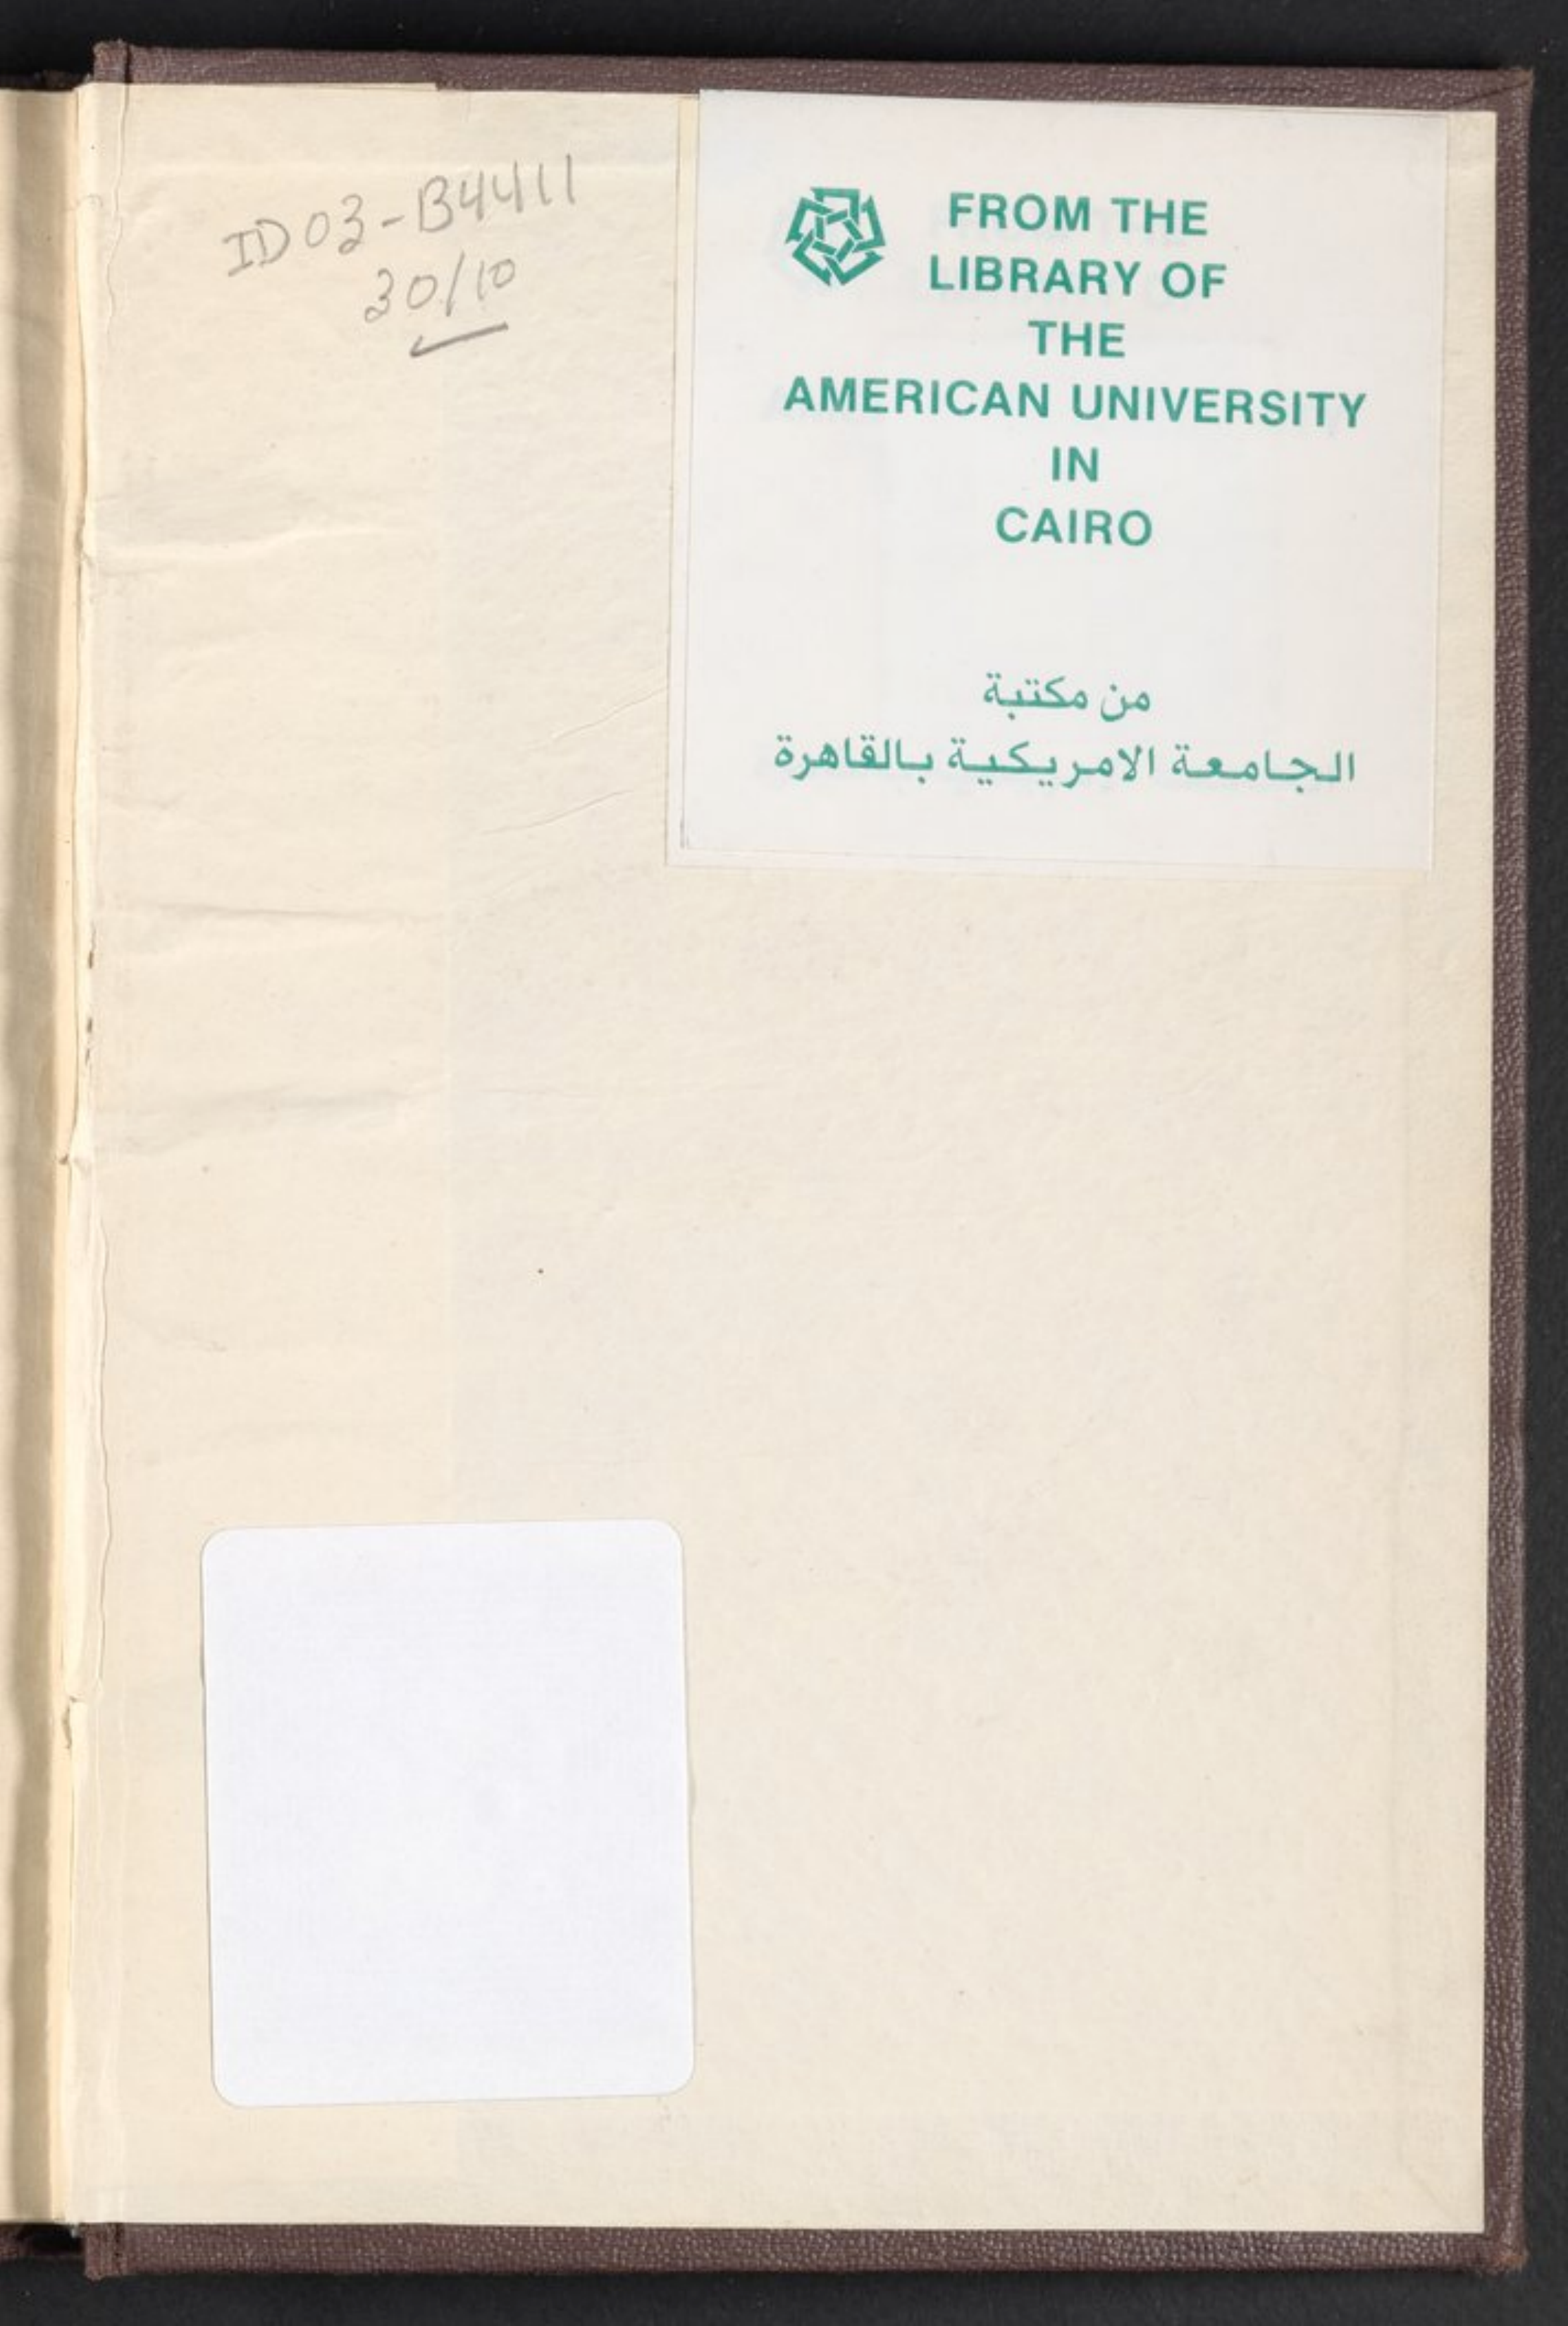 ID03-B4411
30/10
FROM THE
LIBRARY OF
THE
AMERICAN UNIVERSITY
IN
CAIRO
من مكتبة
الجامعة الامريكية بالقاهرة